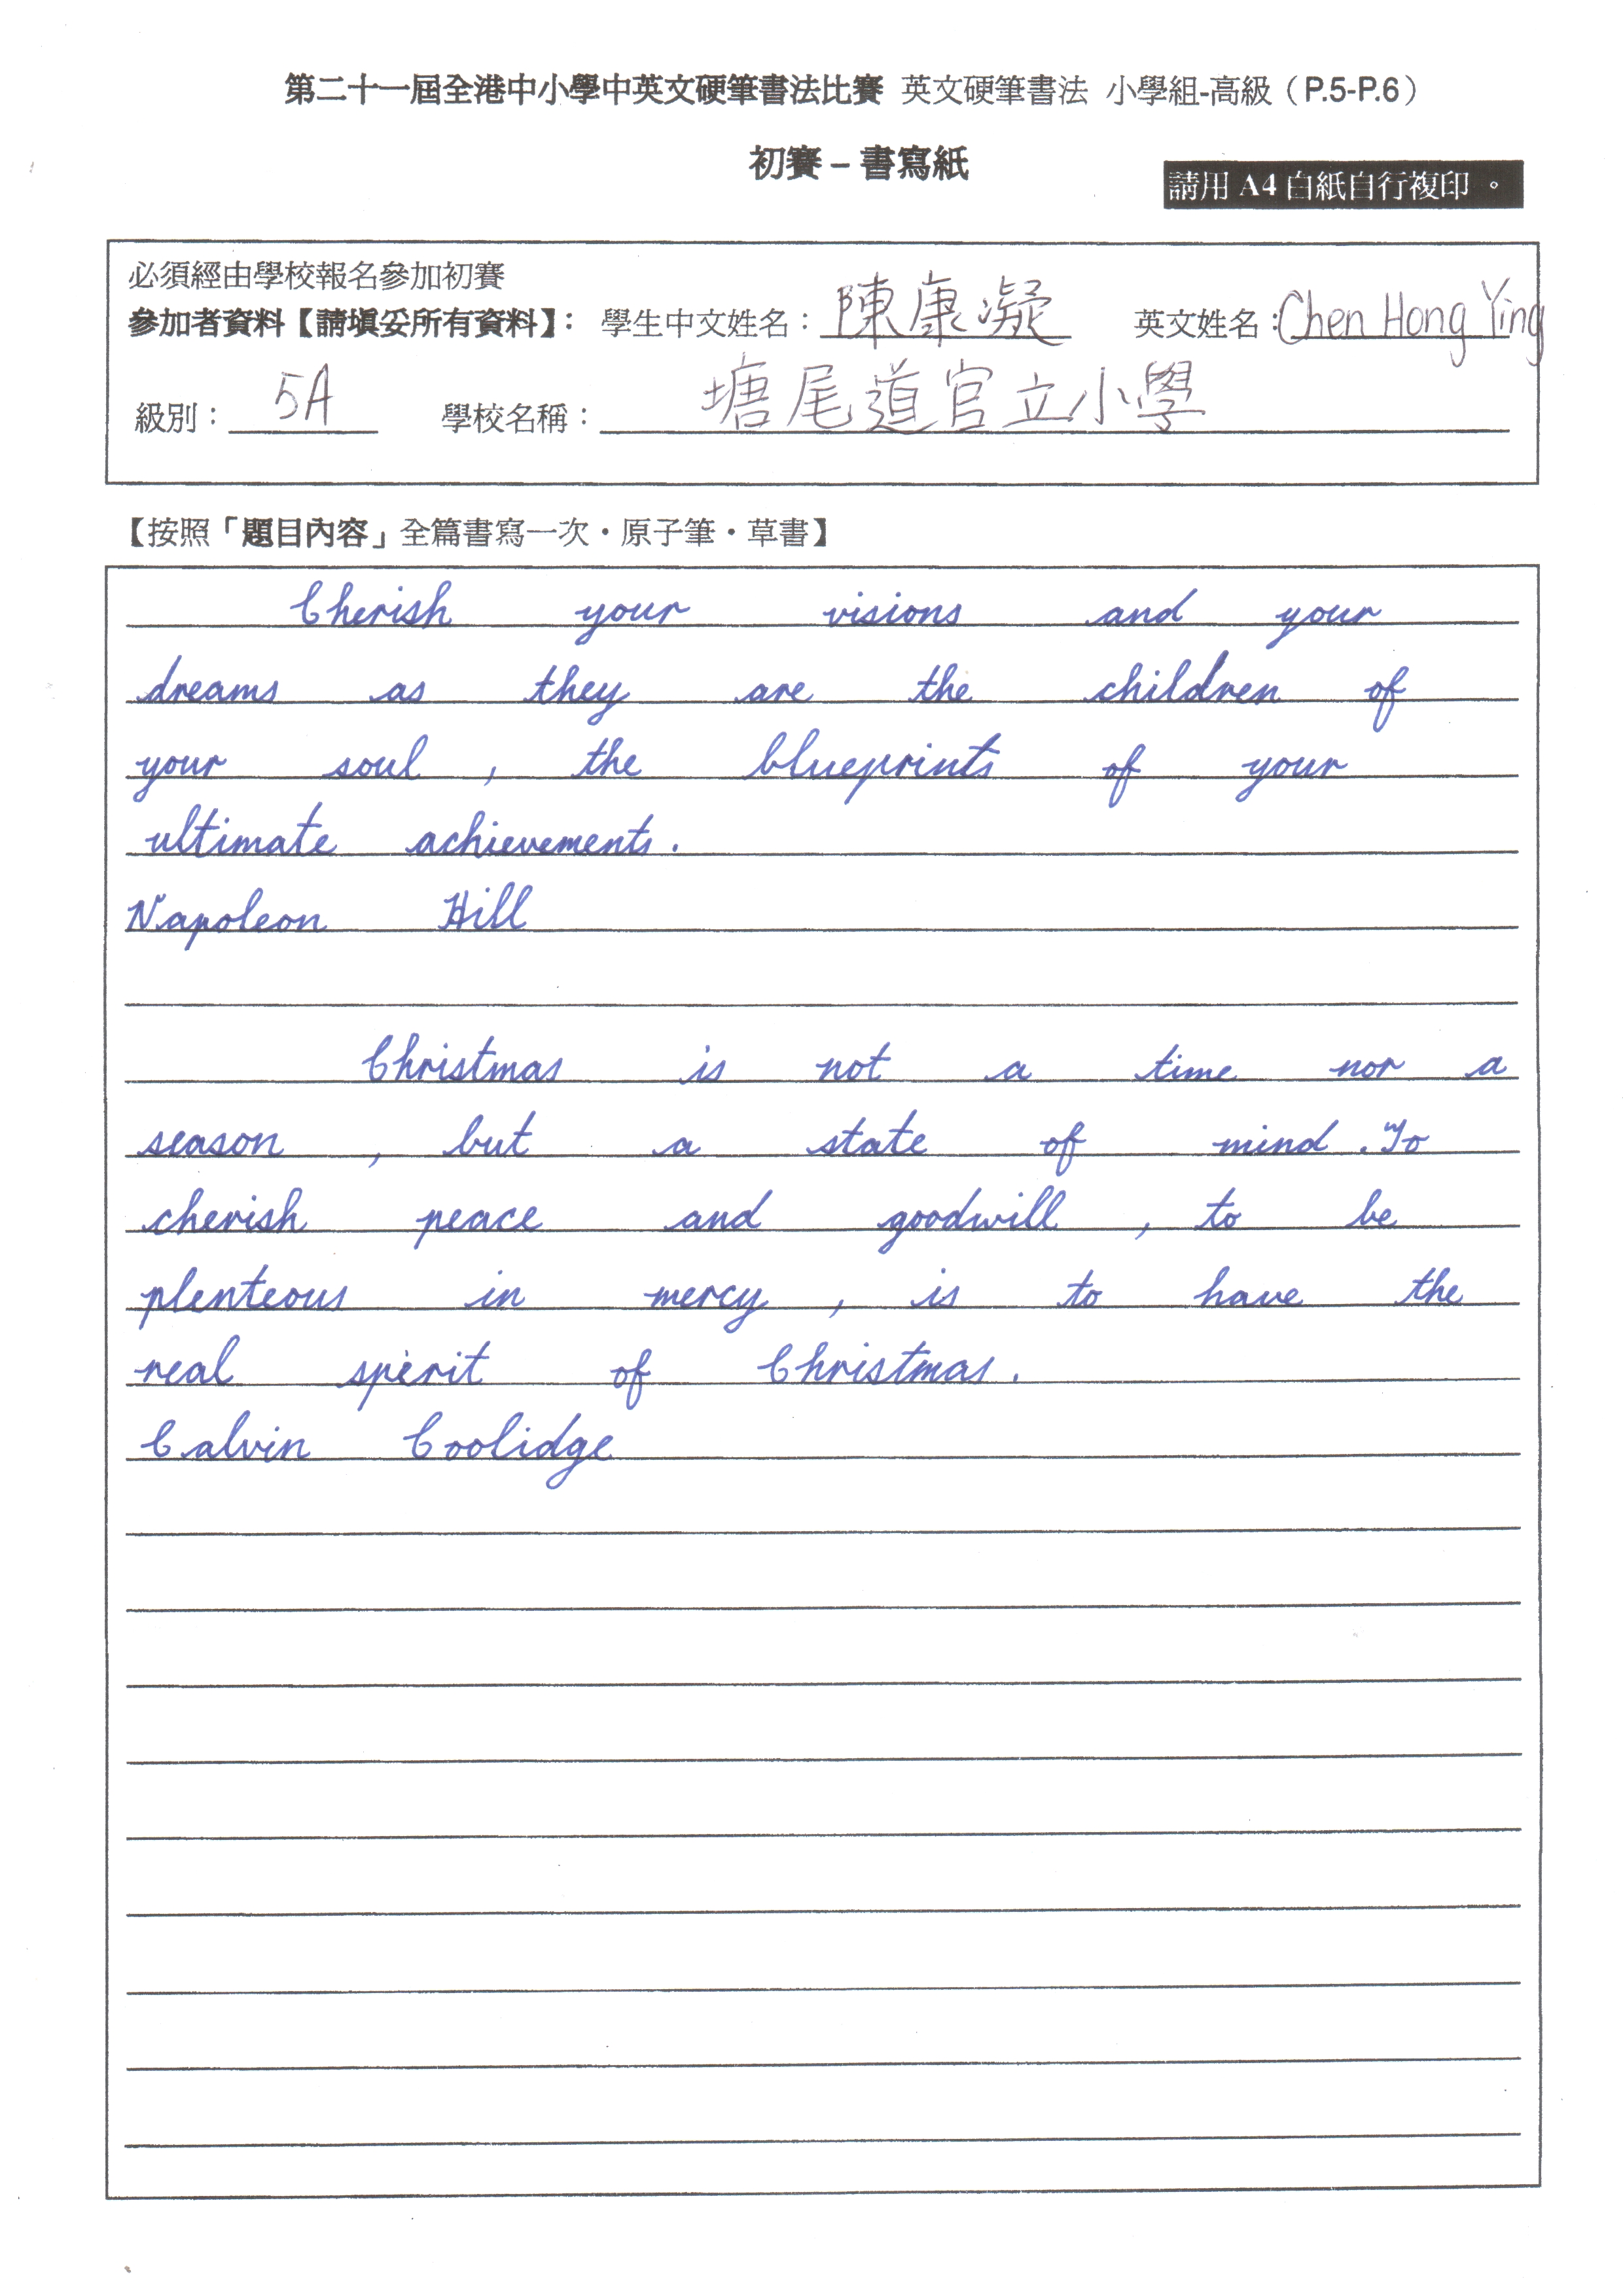 第二十一屆全港中小學中英文硬筆書法比賽 英文硬筆書法 小學組-高級（P.5-P.6）
初賽 – 書寫紙
請用 A4 白紙自行複印。
必須經由學校報名參加初賽
參加者資料【請填妥所有資料】：學生中文姓名：陳康凝 英文姓名：Chen Hong Ying
級別：5A 學校名稱：塘尾道官立小學
【按照「題目內容」全篇書寫一次・原子筆・草書】
Cherish your visions and your
dreams as they are the children of
your soul , the blueprints of your
ultimate achievements .
Napoleon Hill
Christmas is not a time nor a
season , but a state of mind . To
cherish peace and goodwill , to be
plenteous in mercy , is to have the
real spirit of Christmas .
Calvin Coolidge